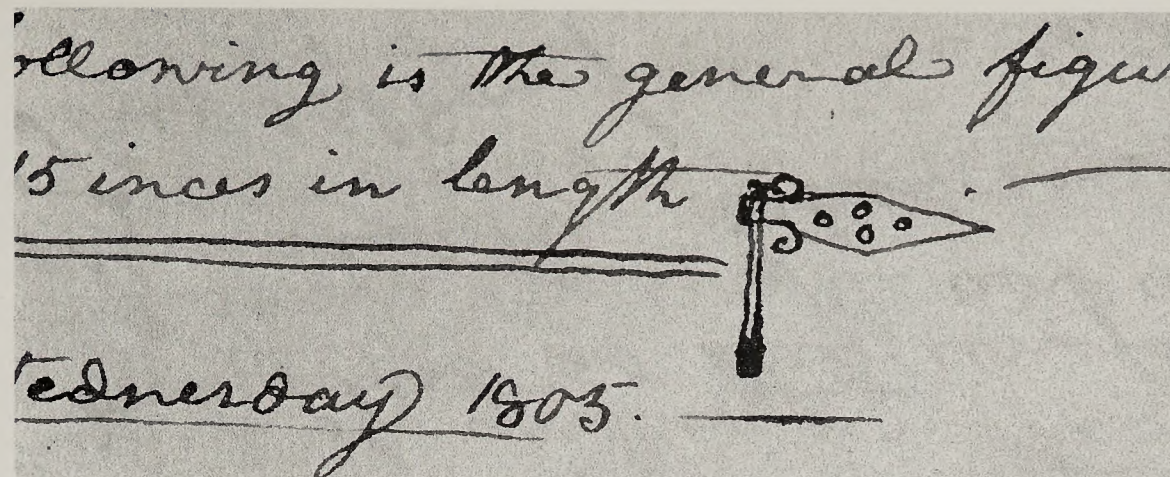 ollowing is the general figu
15 inces in length
ednesday 1805.